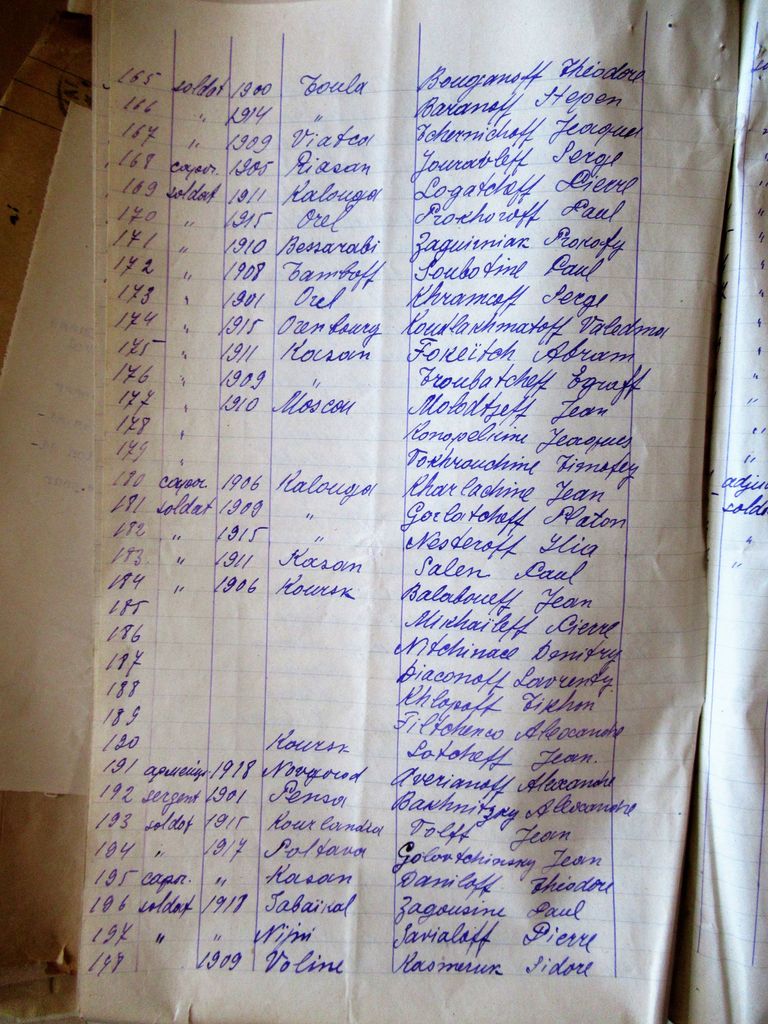 165 soldat 1900 Toula Bouganoff Théodore
166 " 1914 " Baranoff Stepen
167 " 1909 Viatca Tchernichoff Jeaques
168 capor. 1905 Riasan Jouravleff Serge
169 soldat 1911 Kalouga Logatchoff Pierre
170 " 1915 Orel Prokhoroff Paul
171 " 1910 Bessarabi Zaguirniak Prokofy
172 " 1908 Tamboff Soubotine Paul
173 " 1901 Orel Khramcoff Serge
174 " 1915 Orenbourg Koudlakhmatoff
175 " 1911 Kasan Fokeïtch Abram
176 " 1909 " Troubatcheff Egraff
177 " 1910 Moscou Molodtzeff Jean
178 " Konopelkine Jeaques
179 " Timofey
180 capor. 1906 Kalouga Kharlachine Jean
181 soldat 1909 " Gorbatchoff Platon
182 " 1915 " Nesteroff Ilia
183 " 1911 Kasan Salen Paul
184 " 1906 Koursk Balaboueff Jean
185 Mikhaileff Pierre
186 Nitchinace Dmitry
187 Diaconoff Lavrenty
188 Khlopoff Tikhm
189 Filtchenco Alexandre
190 Koursk Lotcheff Jean.
191 1918 Novgorod Averianoff Alexandre
192 sergent 1901 Pensa Bakhnitzky Alexandre
193 soldat 1915 Kourlandia Tolff Jean
194 " 1917 Poltava Golovtchinsky Jean
195 capor. " Kasan Daniloff Théodore
196 soldat 1918 Sabaikal Zagousine Paul
197 " " Nijni Savialoff Pierre
198 1909 Voline Kasmeruk Sidore
adju
solda